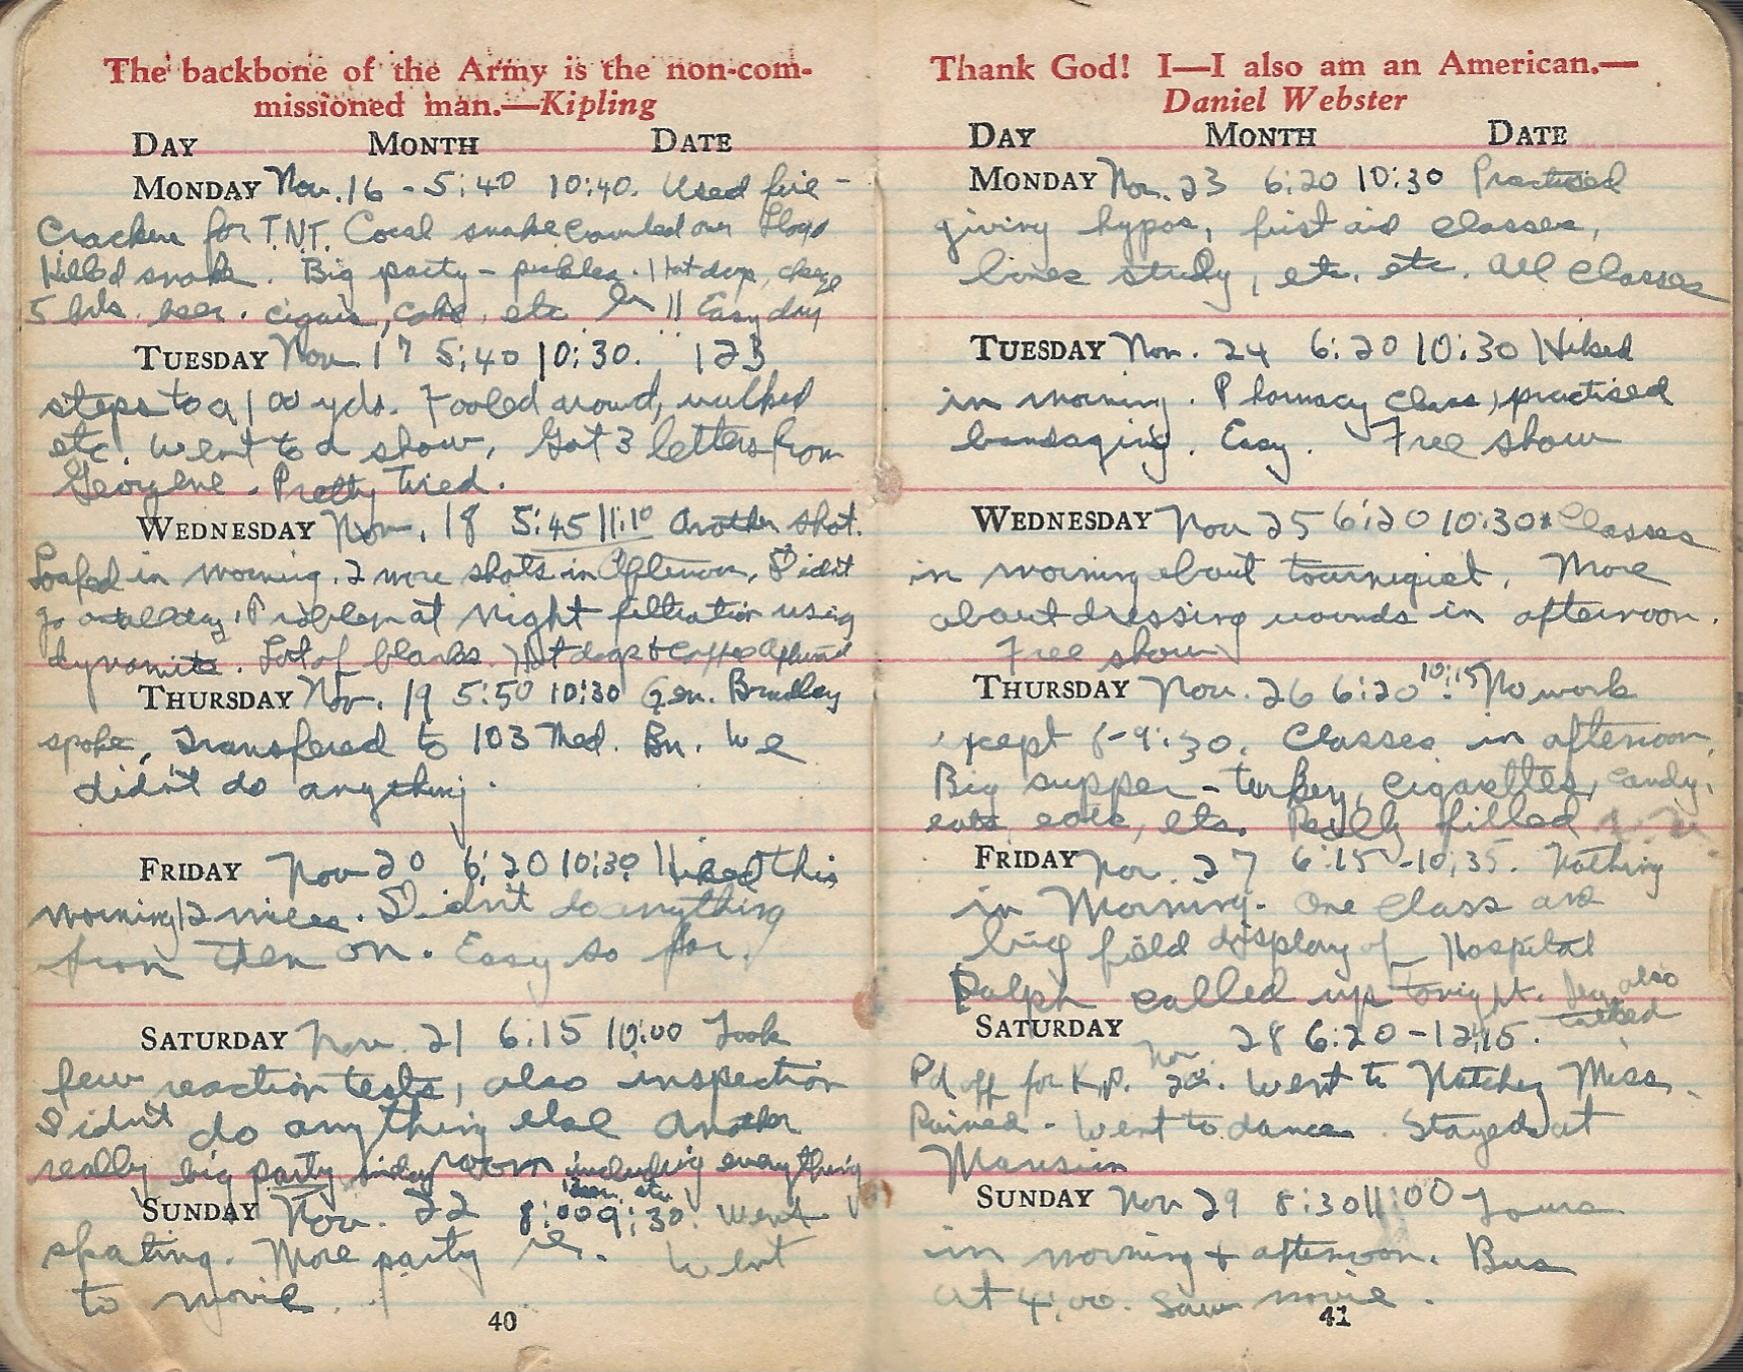 The backbone of the Army is the non-com-
missioned man.—Kipling
DAY MONTH DATE
MONDAY Nov. 16 - 5:40 10:40. Used fire-
Cracker for T.N.T. Coral snake crawled over Floyd
Killed snake. Big party - pickles. Hot dogs, cheeze
5 btls. beer. cigars, coke, etc Easy day
TUESDAY Nov. 17 5:40 10:30. 123
steps to a 100 yds. Fooled around, walked
etc. Went to a show. Got 3 letters from
Georgene. Pretty tired.
WEDNESDAY Nov. 18 5:45 11:10 Another shot.
Loafed in morning. 2 more shots in Afternoon, Didn't
go at all day. Problem at Night filtration using
dynamite. Lot of blanks. Hot dogs & Coffee
THURSDAY Nov. 19 5:50 10:30 Gen. Bradley
spoke, Transfered to 103 Med. Bn. We
didn't do anything.
FRIDAY Nov 20 6:20 10:30 Hiked this
morning 12 miles. Didn't do anything
from then on. Easy so far.
SATURDAY Nov. 21 6:15 10:00 Took
few reaction tests, also inspection
Didn't do anything else Another
really big party in day room including everything
SUNDAY Nov. 22 8:00 9:30. Went
skating. More party Went
to movie.
40
Thank God! I—I also am an American.—
Daniel Webster
DAY MONTH DATE
MONDAY Nov. 23 6:20 10:30 Practiced
giving hypos, first aid classes,
bones study, etc. etc. All Classes
TUESDAY Nov. 24 6:20 10:30 Hiked
in morning. Pharmacy Class, practised
bandaging. Easy. Free show
WEDNESDAY Nov 25 6:20 10:30 Classes
in morning about tourniqiet. More
about dressing wounds in afternoon.
Free show
THURSDAY Nov. 26 6:20 10:15 No work
xcept 8-9:30. Classes in afternoon,
Big supper - turkey, cigarettes, candy,
etc. Really filled
FRIDAY Nov. 27 6:15 - 10:35. Nothing
in Morning. One Class and
big field display of Hospital
Ralph called up tonight. also
talked
SATURDAY Nov. 28 6:20 - 12:15.
Pd off for K.P. Went to Natchez Miss.
Rained - Went to dance. Stayed at
Mansion
SUNDAY Nov 29 8:30 11:00 Tours
in morning + afternoon. Bus
at 4:00. Saw movie.
41